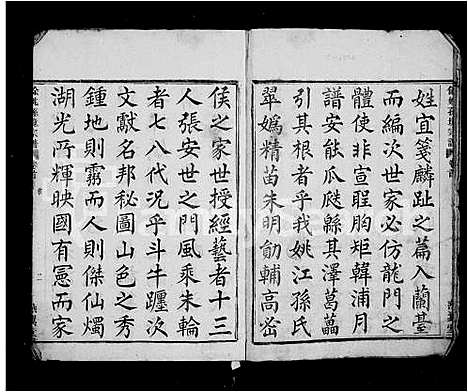 姓宜箋麟趾之篇入蘭臺
而編次世家必仿龍門之
體使非宣聖胸矩韓浦月
譜安能瓜瓞緜其澤葛藟
引其根者乎我姚江孫氏
翠嬀精苗朱明勛輔高密
侯之家世授經藝者十三
人張安世之門風乘朱輪
者七八代況乎斗牛躔次
文獻名邦秘圖山色之秀
鍾地則霧而人則傑仙燭
湖光所輝映國有憲而家